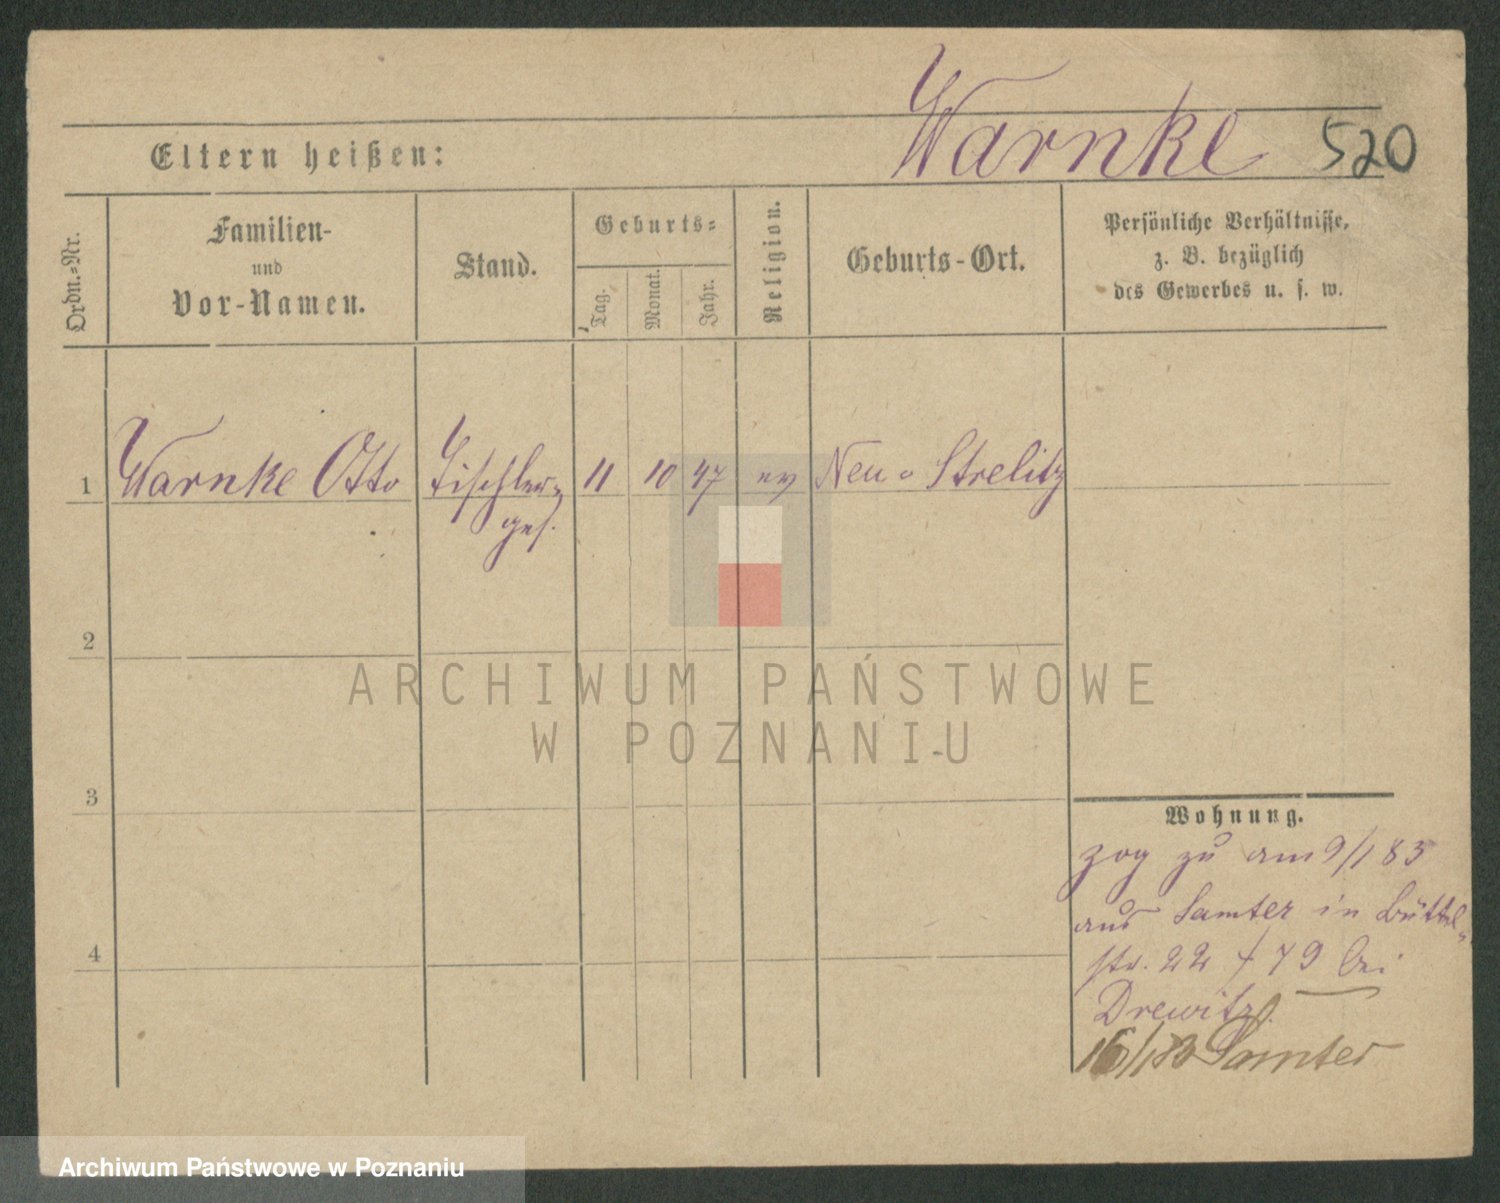 Warnke 520
Eltern heißen:
Ordn.=Nr.
Familien-
und
Vor-Namen.
Stand.
Geburts=
Tag.
Monat.
Jahr.
Religion.
Geburts-Ort.
Persönliche Verhältnisse,
z. B. bezüglich
des Gewerbes u. s. w.
1 Warnke Otto Tischler= 11 10 47 ev Neu-Strelitz
ges.
2
3
4
ARCHIWUM PAŃSTWOWE
W POZNANIU
Wohnung.
zog zu am 9/1 83
aus Samter in Büttel=
str. 22 79 bei
Drewitz.
16/1 Samter
Archiwum Państwowe w Poznaniu